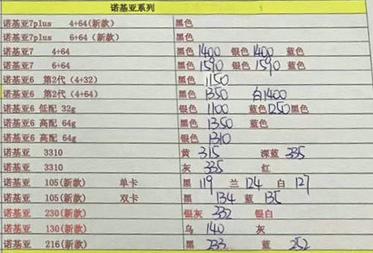 诺基亚系列
诺基亚7plus 4+64(新款) 黑色
诺基亚7plus 6+64(新款) 黑色
诺基亚7 4+64 黑色 1400 银色 1400 蓝色
诺基亚7 6+64 黑色 1590 银色 1590 蓝色
诺基亚6 第2代 (4+32) 黑色 1150
诺基亚6 第2代 (4+64) 黑色 1350 白1400
诺基亚6 低配 32g 银色 1100 蓝色1250黑色
诺基亚6 高配 64g 黑色 1350 蓝色
诺基亚6 高配 64g 银色 1310
诺基亚 3310 黄 315 深蓝 335
诺基亚 3310 灰 335 红
诺基亚 105(新款) 单卡 黑 119 兰 124 白 127
诺基亚 105(新款) 双卡 黑 134 蓝 135
诺基亚 230(新款) 银灰 332 银白
诺基亚 130(新款) 乌 140 灰
诺基亚 216(新款) 黑 233 蓝 252